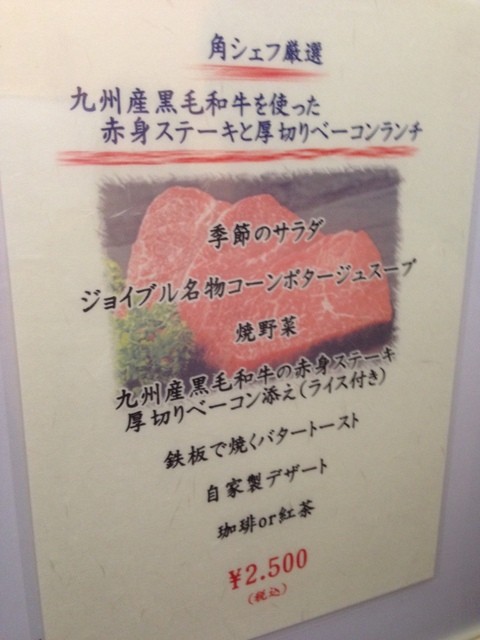 角シェフ厳選
九州産黒毛和牛を使った
赤身ステーキと厚切りベーコンランチ
季節のサラダ
ジョイブル名物コーンポタージュスープ
焼野菜
九州産黒毛和牛の赤身ステーキ
厚切りベーコン添え(ライス付き)
鉄板で焼くバタートースト
自家製デザート
珈琲or紅茶
¥2.500
(税込)